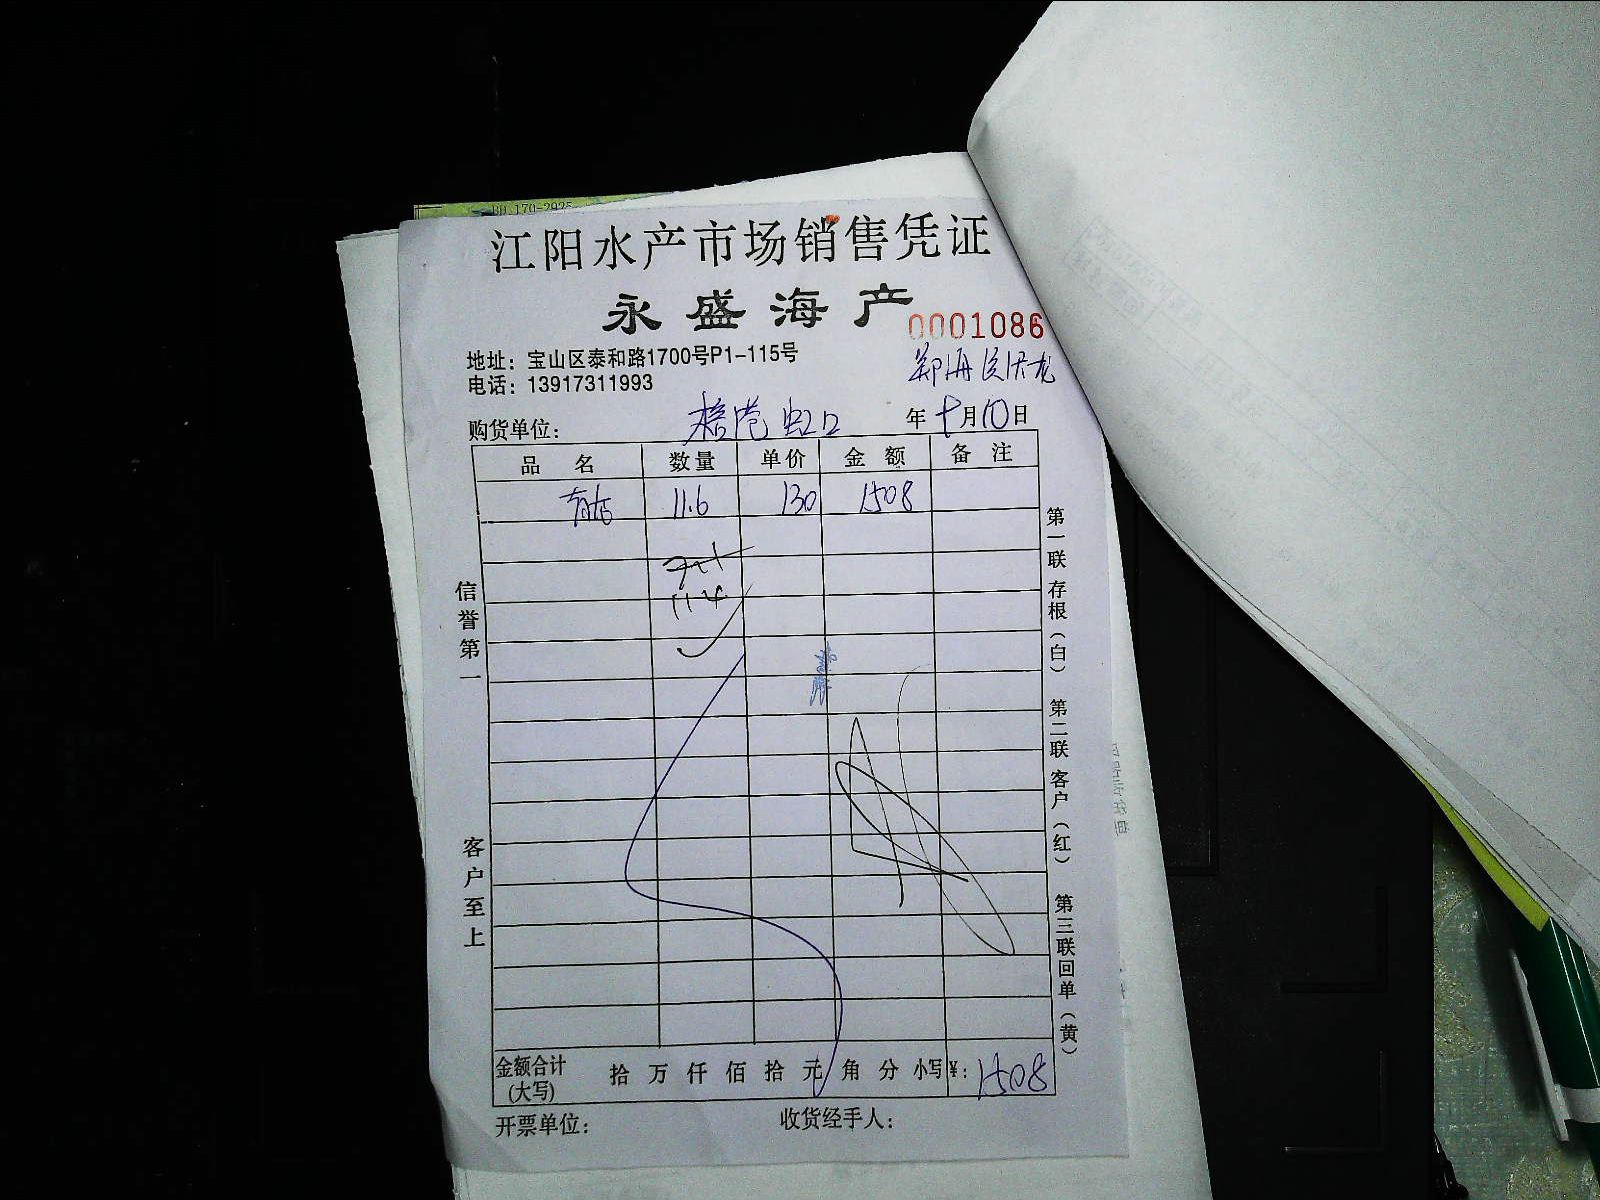 江阳水产市场销售凭证
永盛海产
0001086
地址：宝山区泰和路1700号P1-115号
电话：13917311993
购货单位： 虹口 年 十月10日
品名 数量 单价 金额 备注
11.6 130 1508
11.4
信誉第一
客户至上
第一联 存根（白） 第二联 客户（红） 第三联 回单（黄）
金额合计 拾 万 仟 佰 拾 元 角 分 小写¥：1508
(大写)
开票单位： 收货经手人：